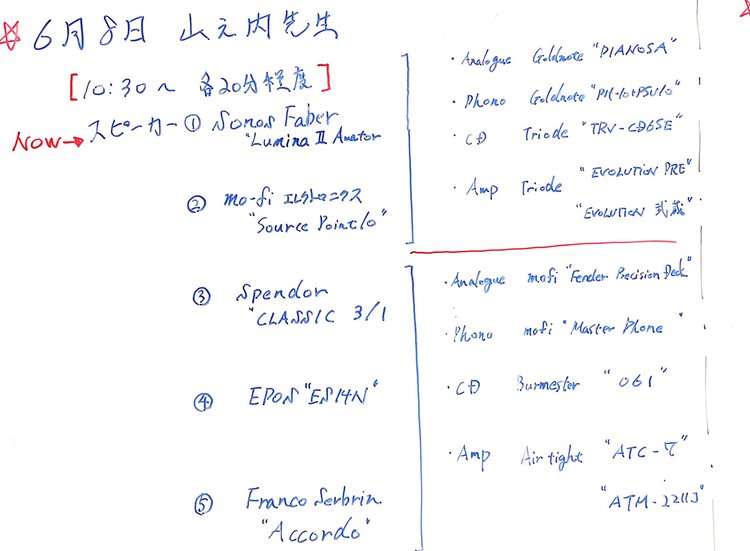 6月8日 山之内先生
[10:30〜 各20分程度]
NOW→ スピーカー ① Sonos Faber
"Lumina II Amator
② mo-fi エレクトロニクス
"Source Point10"
③ Spendor
"CLASSIC 3/1
④ EPOS "ES14N"
⑤ Franco Serbrin
"Accordo"
・Analogue Goldnote "PIANOSA"
・Phono Goldnote "PH-10+PSU10"
・CD Triode "TRV-CD6SE"
・Amp Triode "EVOLUTION PRE"
"EVOLUTION 武蔵"
・Analogue mofi "Fender Precision Deck"
・Phono mofi "Master Phono"
・CD Burmester "061"
・Amp Air tight "ATC-7"
"ATM-2211J"